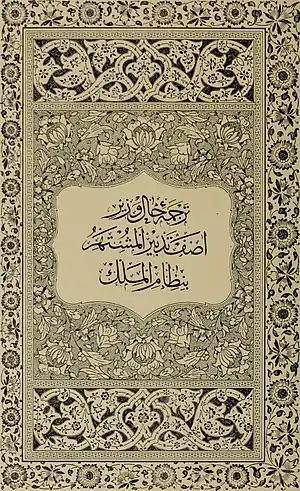 ترجمۀ حال وزیر
آصف تدبیر المشتهر
بنظام الملک